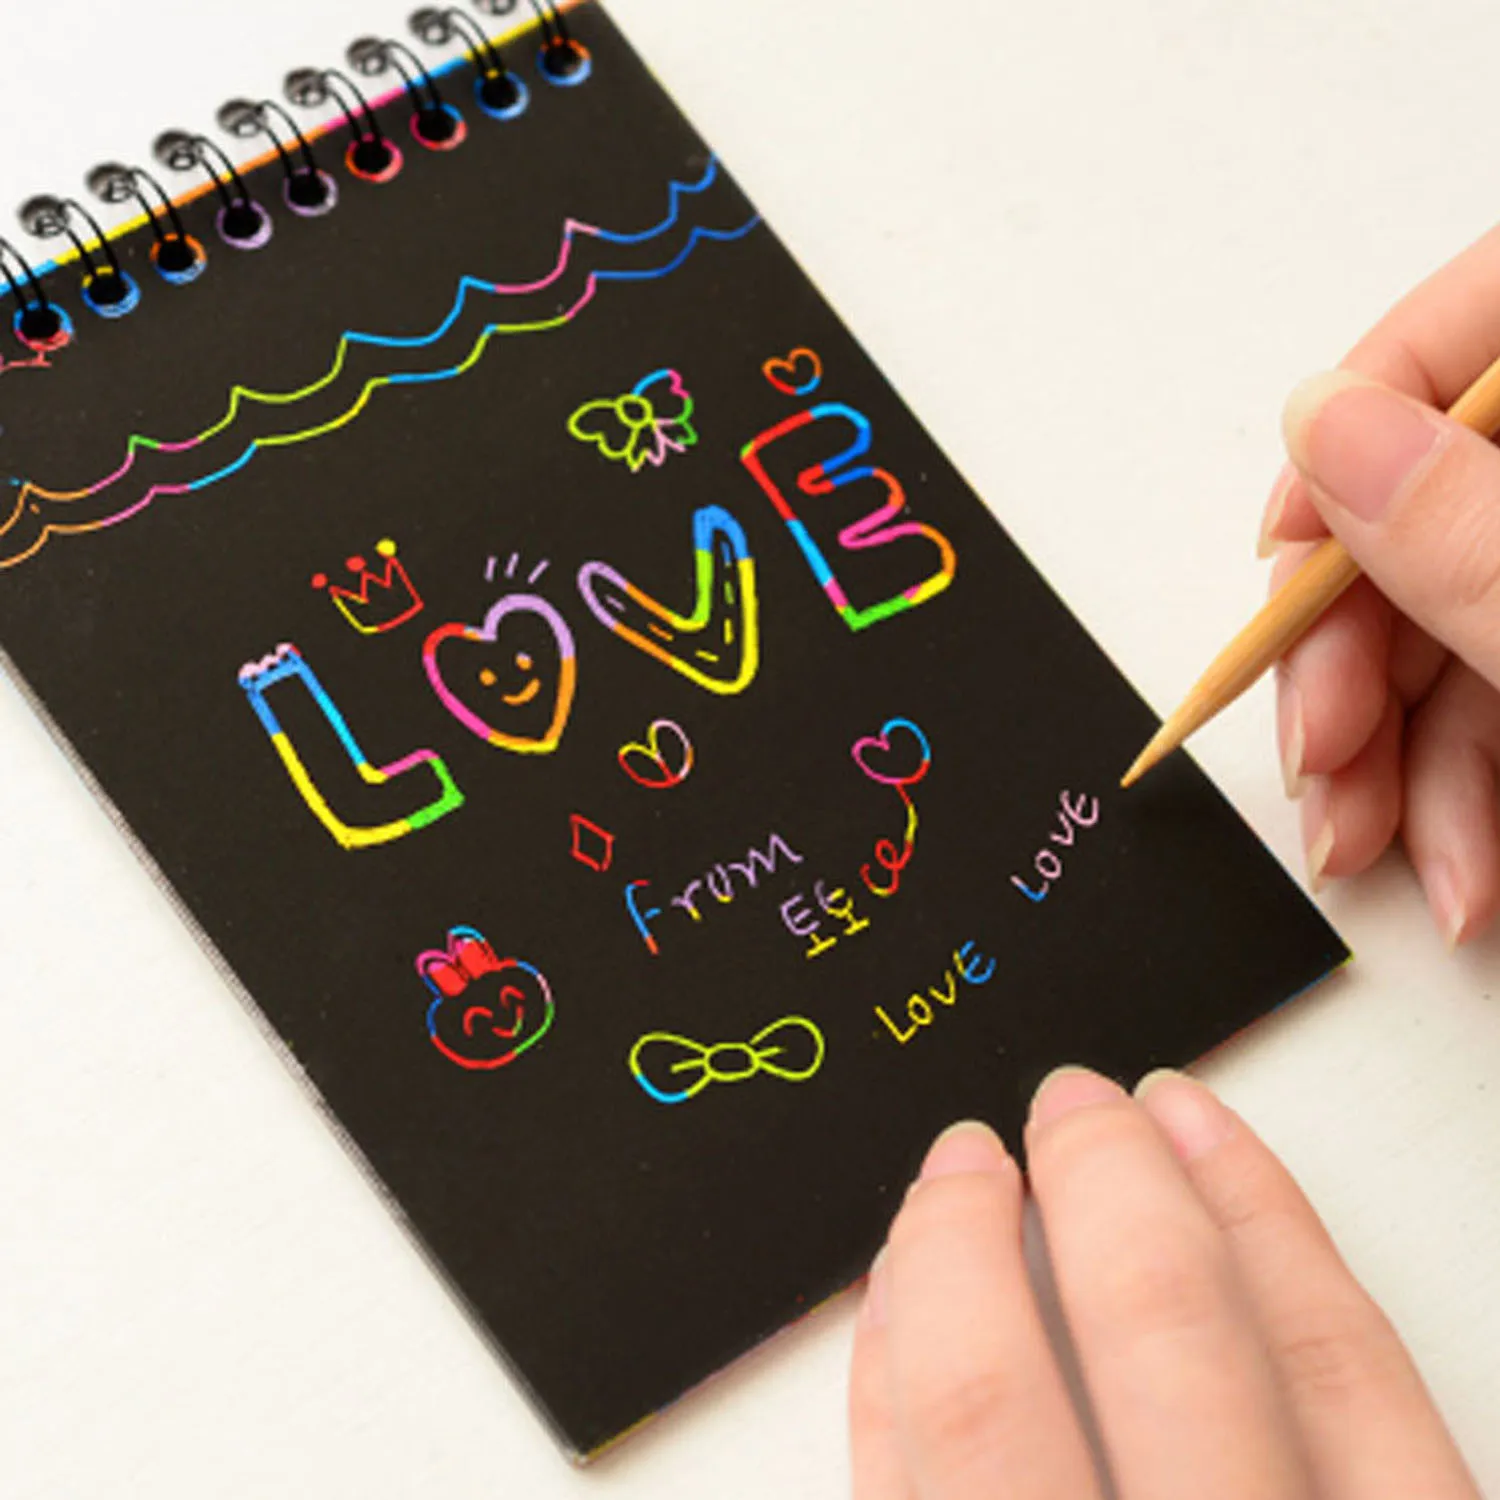 LOVE
From 토토 ce
LOVE
LOVE